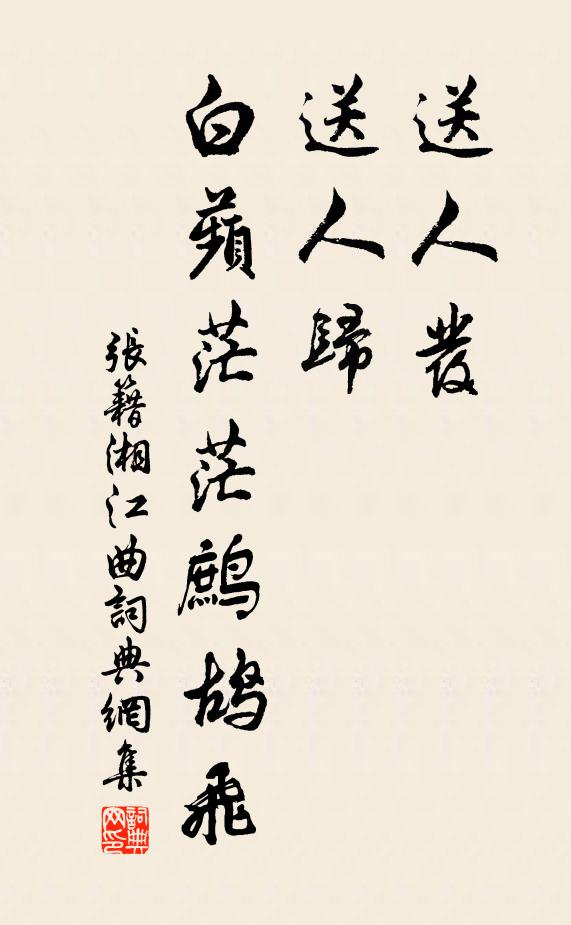 送人發
送人歸
白蘋茫茫鷓鴣飛
張籍湘江曲詞典網集
詞典網印